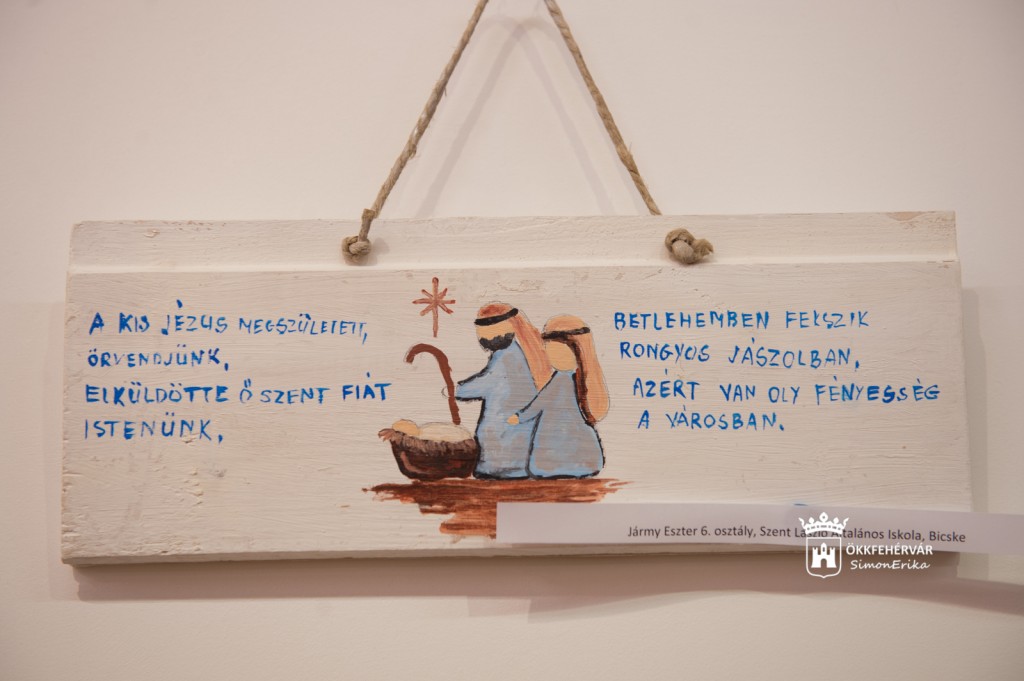 A KIS JÉZUS MEGSZÜLETETT,
ÖRVENDJÜNK,
ELKÜLDÖTTE Ő SZENT FIÁT
ISTENÜNK,
BETLEHEMBEN FEKSZIK
RONGYOS JÁSZOLBAN,
AZÉRT VAN OLY FÉNYESSÉG
A VÁROSBAN.
Jármy Eszter 6. osztály, Szent László Általános Iskola, Bicske
ÖKKFEHÉRVÁR
SimonErika